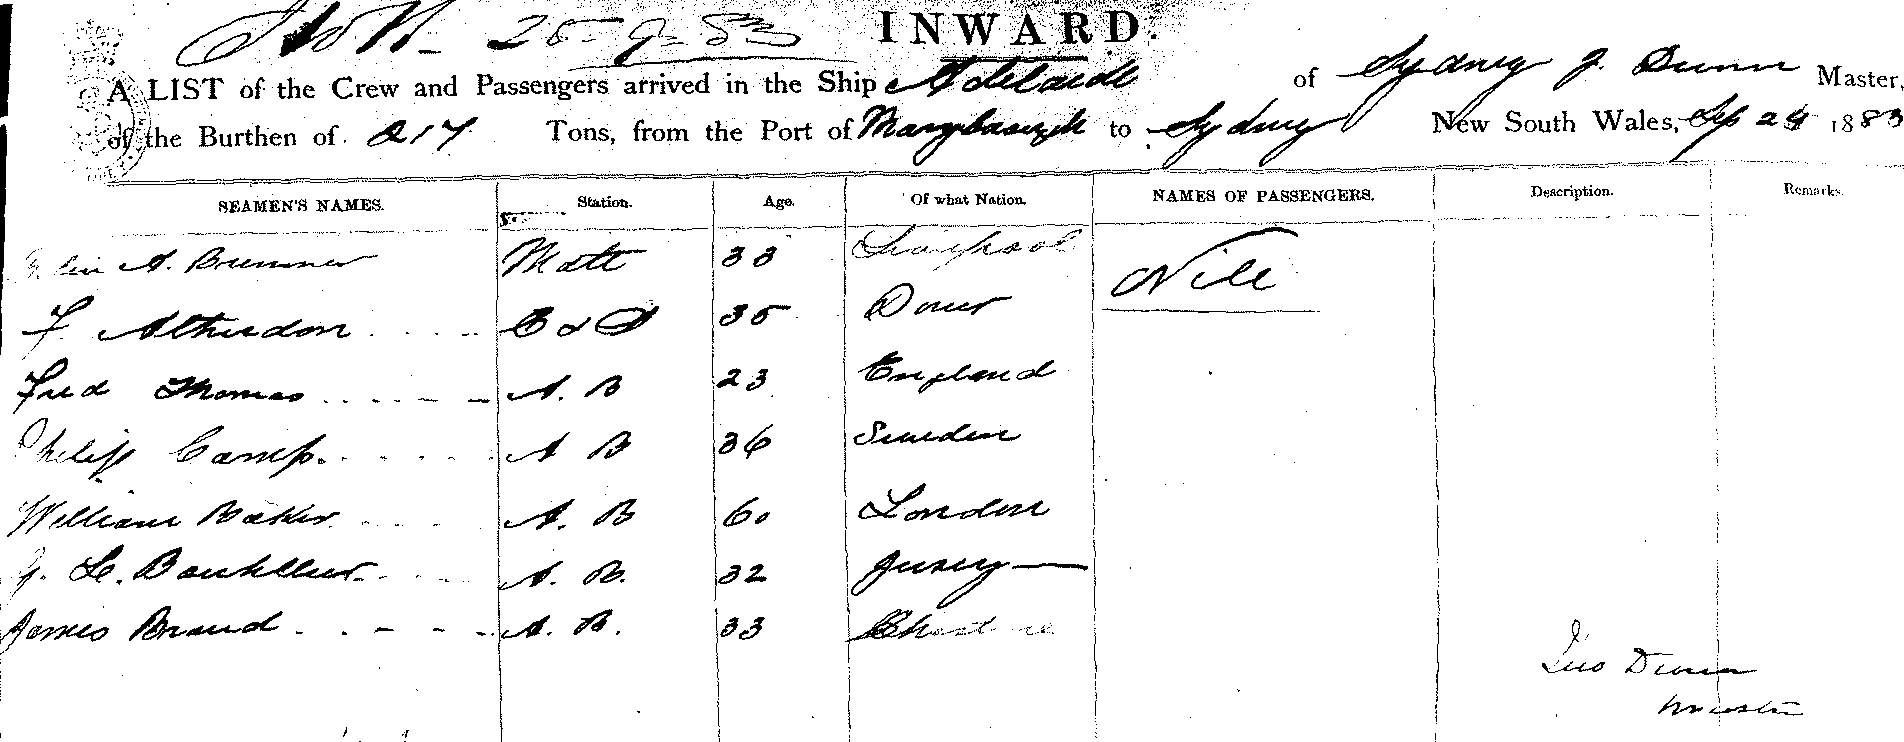 25-9-83 INWARD.
A LIST of the Crew and Passengers arrived in the Ship Adelaide of Sydney J. Dunn Master,
of the Burthen of 217 Tons, from the Port of to Sydney New South Wales, Sep 24 1883
SEAMEN'S NAMES. Station. Age. Of what Nation. NAMES OF PASSENGERS. Description. Remarks.
A. Mate 33 Liverpool Nill
F. Atherdon C & S 35 Dover
Fred Thomas A. B 23 England
Philip Camp. A B 36 Sweden
William Baker A. B 60 London
Le. A. B. 32 Jersey
James Brand A. B. 33
Dunn
Master